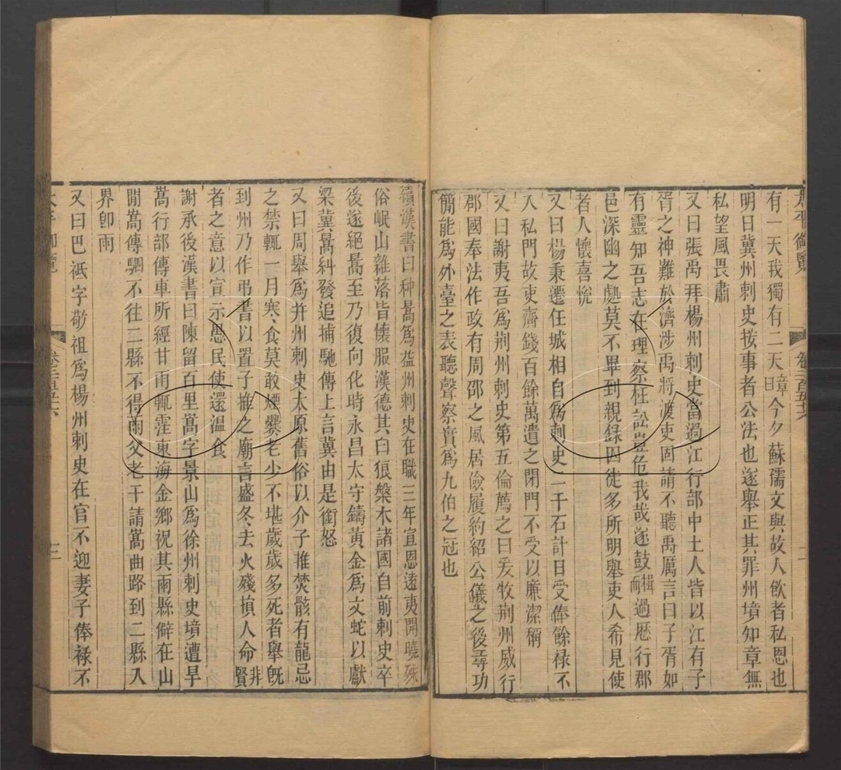 太平御覽
卷二百五十六
有二天我獨有二天章曰今夕蘇孺文與故人飲者私恩也
明日冀州刺史按事者公法也遂舉正其罪州境知章無
私望風畏肅
又曰張禹拜楊州刺史當過江行部中土人皆以江有子
胥之神難於濟涉禹將渡吏固請不聽禹厲言曰子胥如
有靈知吾志在理察枉訟豈危我哉遂鼓楫而過歷行郡
邑深幽之處莫不畢到親錄囚徒多所明舉吏人希見使
者人懷喜悅
又曰楊秉遷任城相自為刺史二千石計日受俸餘祿不
入私門故吏齎錢百餘萬遺之閉門不受以廉潔稱
又曰謝夷吾為荆州刺史第五倫薦之曰爰牧荆州威行
郡國奉法作政有周邵之風居儉履約紹公儀之後尋功
簡能為外臺之表聽聲察實為九伯之冠也
續漢書曰种暠為益州刺史在職三年宣恩遠夷開曉殊
俗岷山雜落皆懷服漢德其白狼槃木諸國自前刺史卒
後遂絕暠至乃復向化時永昌太守鑄黃金為文蛇以獻
梁冀暠糾發追捕馳傳上言冀由是銜怒
又曰周舉為并州刺史太原舊俗以介子推焚骸有龍忌
之禁輒一月寒食莫敢煙爨老少不堪歲歲多死者舉既
到州乃作弔書以置子推之廟言盛冬去火殘損人命非賢
者之意以宣示愚民使還溫食
謝承後漢書曰陳留百里嵩字景山為徐州刺史境遭旱
嵩行部傳車所經甘雨輒霔東海金鄉祝其兩縣僻在山
間嵩傳駟不往二縣不得雨父老干請嵩曲路到二縣入
界即雨
又曰巴祗字敬祖為楊州刺史在官不迎妻子俸祿不
太平御覽
卷二百五十六
十三